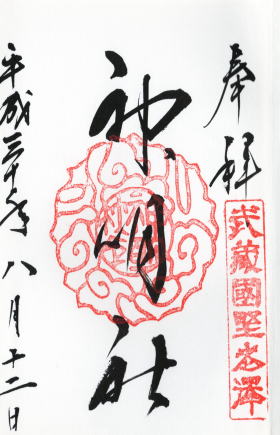 奉拝
武蔵國野老澤
神明社
平成三十年八月十二日